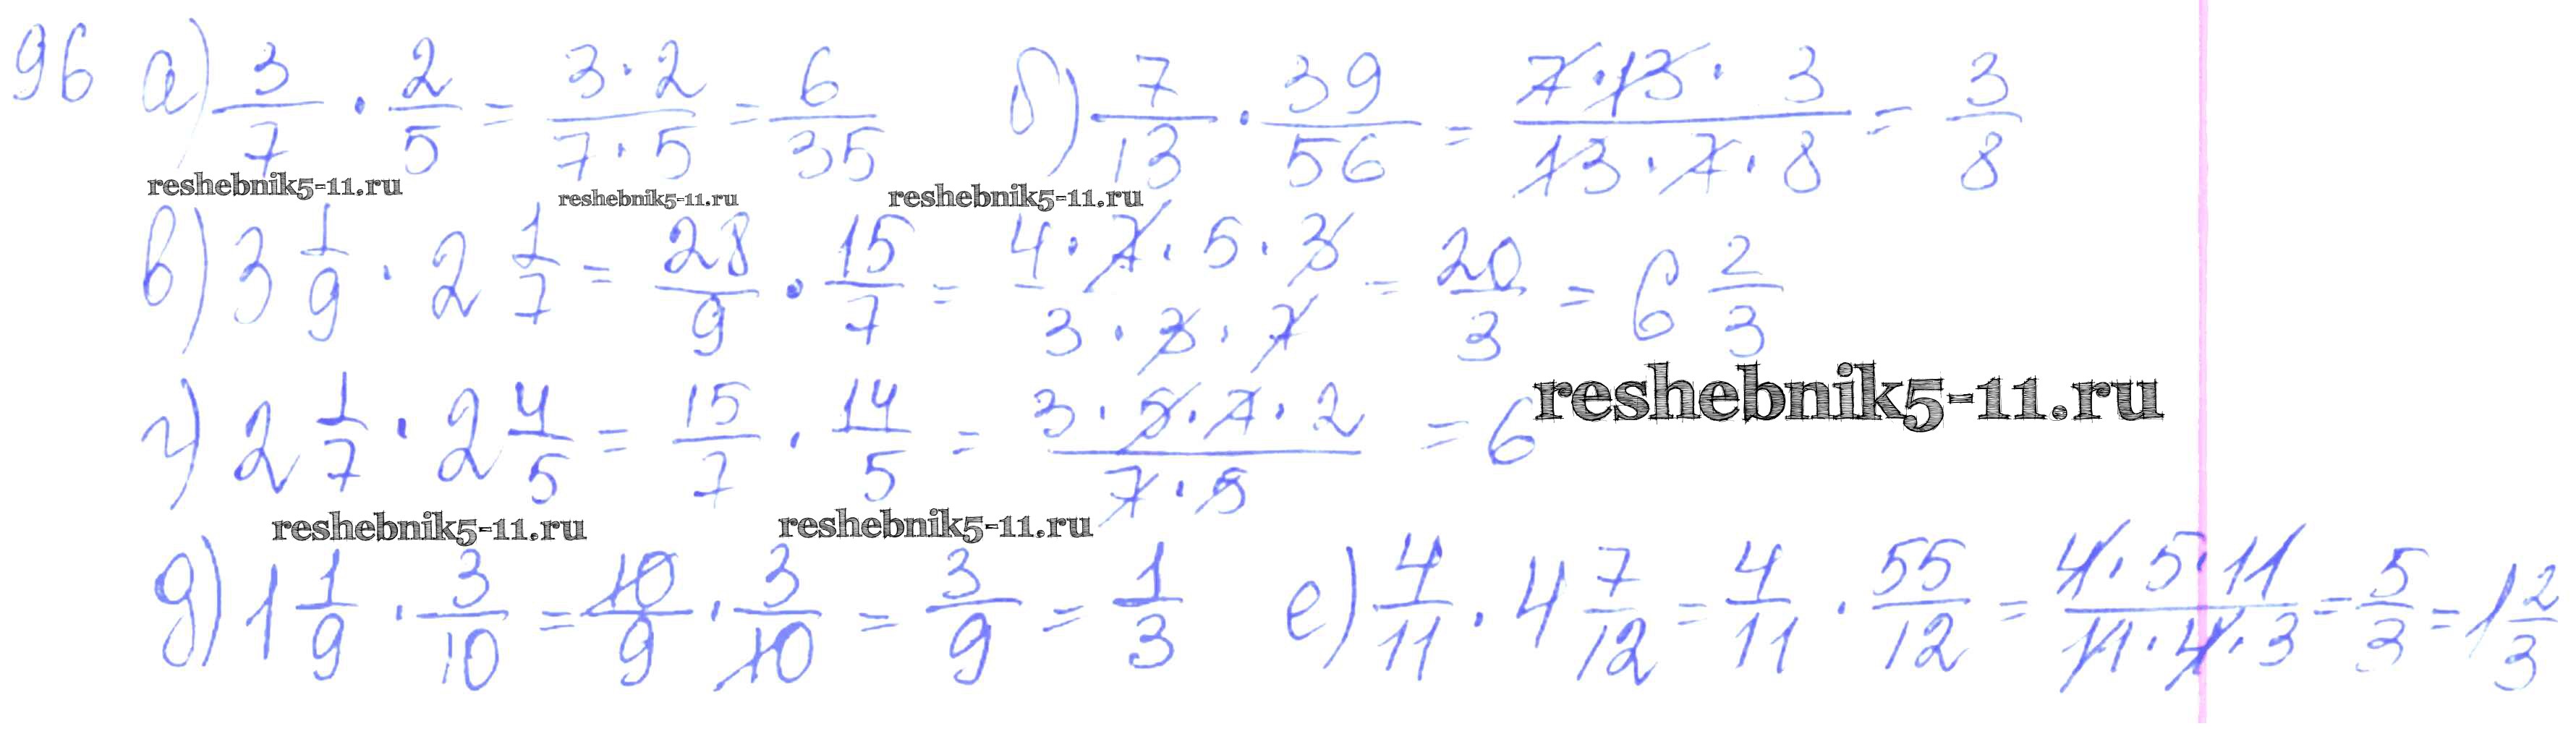 96 а) 3/7 · 2/5 = 3·2/7·5 = 6/35 б) 7/13 · 39/56 = 7·13·3/13·7·8 = 3/8
reshebnik5-11.ru reshebnik5-11.ru reshebnik5-11.ru
в) 3 1/9 · 2 1/7 = 28/9 · 15/7 = 4·7·5·3/3·3·7 = 20/3 = 6 2/3
г) 2 1/7 · 2 4/5 = 15/7 · 14/5 = 3·5·7·2/7·5 = 6 reshebnik5-11.ru
reshebnik5-11.ru reshebnik5-11.ru
д) 1 1/9 · 3/10 = 10/9 · 3/10 = 3/9 = 1/3 е) 4/11 · 4 7/12 = 4/11 · 55/12 = 4·5·11/11·4·3 = 5/3 = 1 2/3